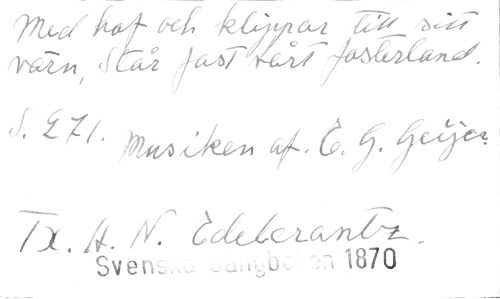 Med haf och klippar till sitt
värn, står fast vårt fosterland.
S. 271.
Musiken af. E. G. Geijer.
Tx. A. N. Edelcrantz.
Svenska Sångboken 1870